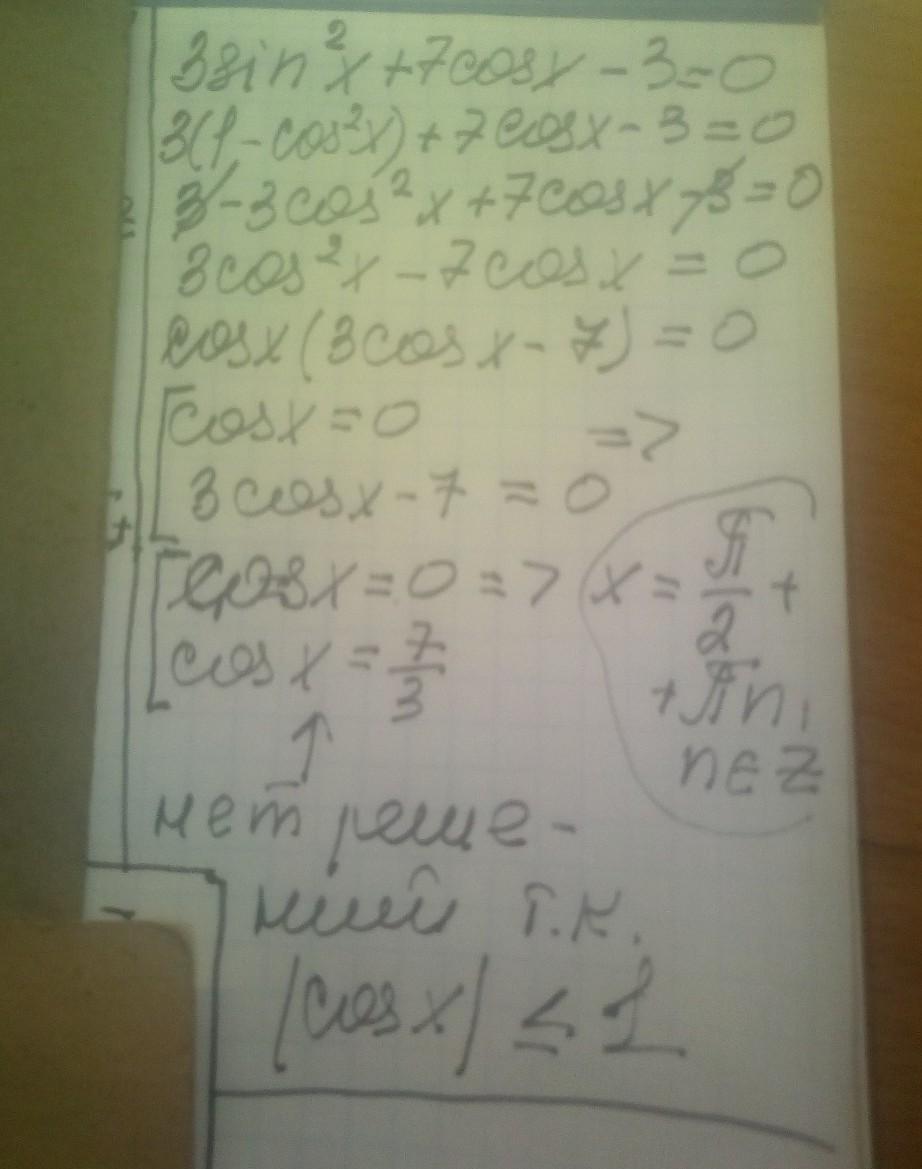 3sin²x + 7cosx - 3 = 0
3(1 - cos²x) + 7cosx - 3 = 0
3 - 3cos²x + 7cosx - 3 = 0
3cos²x - 7cosx = 0
cosx(3cosx - 7) = 0
cosx = 0 =>
3cosx - 7 = 0
cosx = 0 => x = π/2 +
+ πn,
n∈Z
cosx = 7/3
↑
нет реше-
ний т.к.
|cosx| ≤ 1